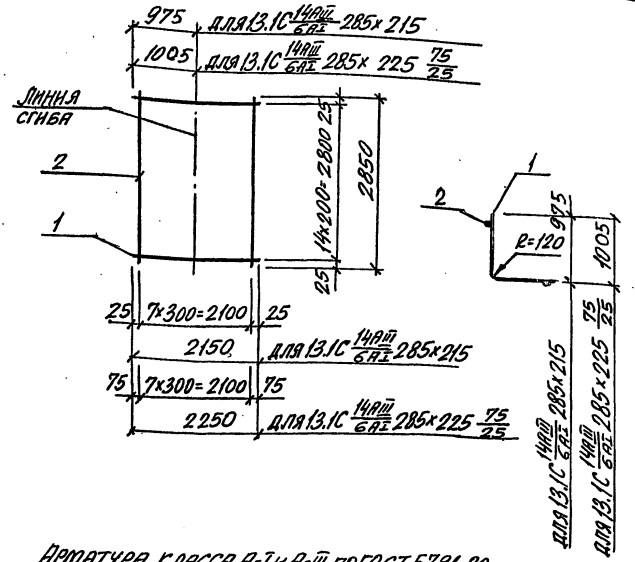 975 ДЛЯ 13.1С 14АIII/6АI 285×215
1005 ДЛЯ 13.1С 14АIII/6АI 285×225 75/25
ЛИНИЯ
СГИБА
2
1
25
14×200=2800
25
2850
25 7×300=2100 25
2150 ДЛЯ 13.1С 14АIII/6АI 285×215
75 7×300=2100 75
2250 ДЛЯ 13.1С 14АIII/6АI 285×225 75/25
1
2
R=120
975
1005
ДЛЯ 13.1С 14АIII/6АI 285×215
ДЛЯ 13.1С 14АIII/6АI 285×225 75/25
АРМАТУРА КЛАССА А-I И А-III ПО ГОСТ 5781-